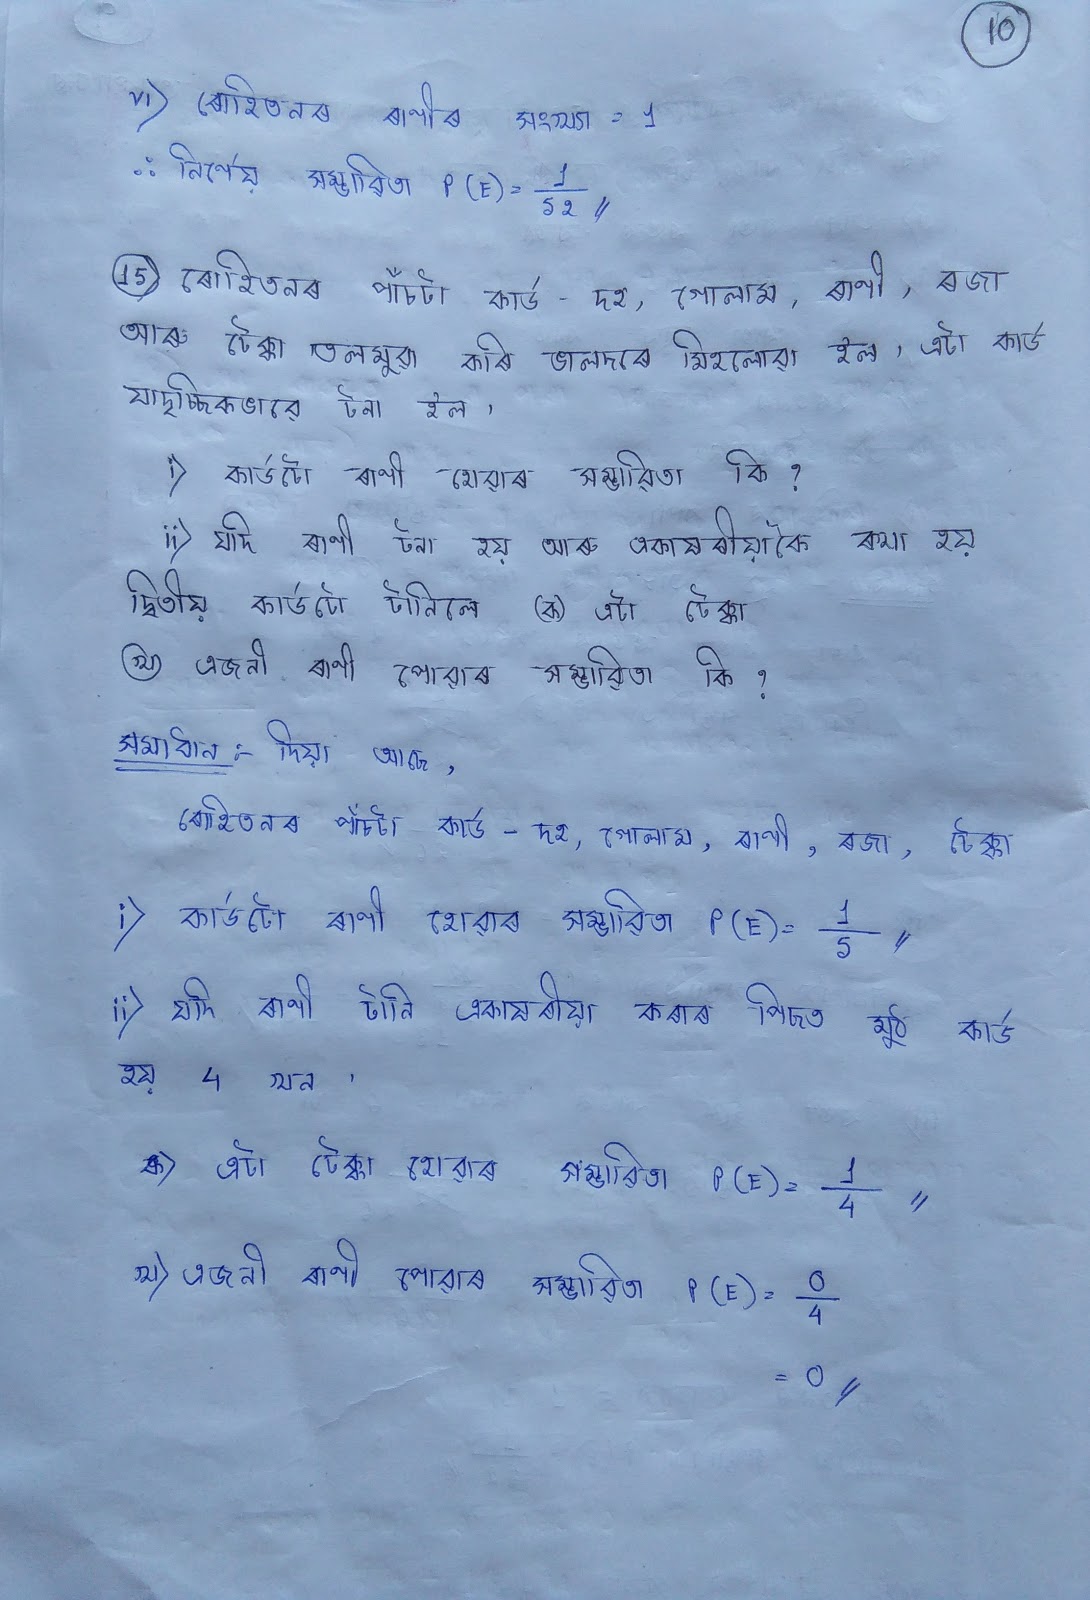 10
vi) ৰোহিতনৰ ৰাণীৰ সংখ্যা = 1
∴ নিৰ্ণেয় সম্ভাৱিতা P(E) = 1/52 //
15) ৰোহিতনৰ পাঁচটা কাৰ্ড - দহ, গোলাম, ৰাণী, ৰজা
আৰু টেক্কা তলমুৱা কৰি ভালদৰে মিহলোৱা হ'ল। এটা কাৰ্ড
যাদৃচ্ছিকভাৱে টনা হ'ল।
i) কাৰ্ডটো ৰাণী হোৱাৰ সম্ভাৱিতা কি ?
ii) যদি ৰাণী টনা হয় আৰু একাষৰীয়াকৈ ৰখা হয়
দ্বিতীয় কাৰ্ডটো টানিলে (ক) এটা টেক্কা
(খ) এজনী ৰাণী পোৱাৰ সম্ভাৱিতা কি ?
সমাধান :- দিয়া আছে,
ৰোহিতনৰ পাঁচটা কাৰ্ড - দহ, গোলাম, ৰাণী, ৰজা, টেক্কা
i) কাৰ্ডটো ৰাণী হোৱাৰ সম্ভাৱিতা P(E) = 1/5 //
ii) যদি ৰাণী টানি একাষৰীয়া কৰাৰ পিছত মুঠ কাৰ্ড
হয় 4 খন।
ক) এটা টেক্কা হোৱাৰ সম্ভাৱিতা P(E) = 1/4 //
খ) এজনী ৰাণী পোৱাৰ সম্ভাৱিতা P(E) = 0/4
= 0 //